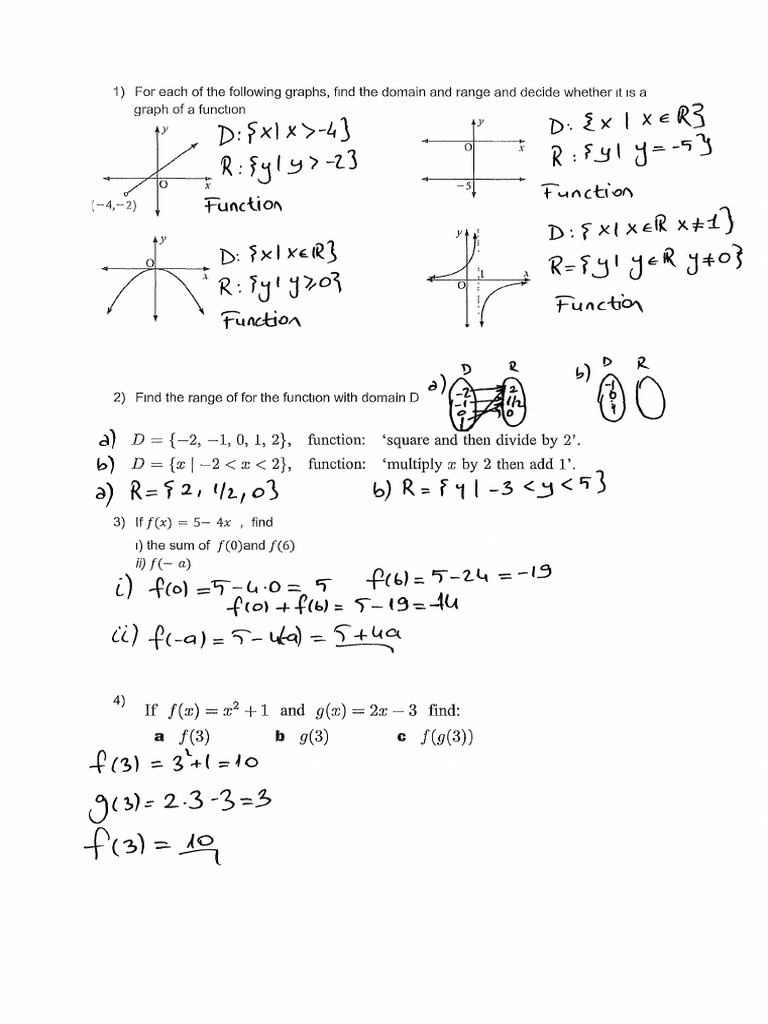 1) For each of the following graphs, find the domain and range and decide whether it is a
graph of a function
y
O
x
(−4,−2)
D: {x| x >-4}
R: {y| y > -2}
Function
y
O
x
−5
D: {x | x ∈ R}
R: {y| y = -5}
Function
y
O
x
D: {x| x∈R}
R: {y| y≥0}
Function
y
O
1
x
D: {x| x∈R x≠1}
R= {y| y∈R y≠0}
Function
2) Find the range of for the function with domain D
a) D R
-2
-1
0
1
2
1/2
0
b) D R
-1
0
1
a) D = {−2, −1, 0, 1, 2}, function: ‘square and then divide by 2’.
b) D = {x | −2 < x < 2}, function: ‘multiply x by 2 then add 1’.
a) R= {2, 1/2, 0} b) R = {y| -3 < y < 5}
3) If f(x) = 5− 4x , find
i) the sum of f(0)and f(6)
ii) f(− a)
i) f(0) = 5-4·0 = 5 f(6) = 5-24 = -19
f(0) + f(6) = 5-19 = -14
ii) f(-a) = 5-4(-a) = 5+4a
4)
If f(x) = x² + 1 and g(x) = 2x − 3 find:
a f(3) b g(3) c f(g(3))
f(3) = 3²+1 = 10
g(3) = 2·3 -3 = 3
f(3) = 10